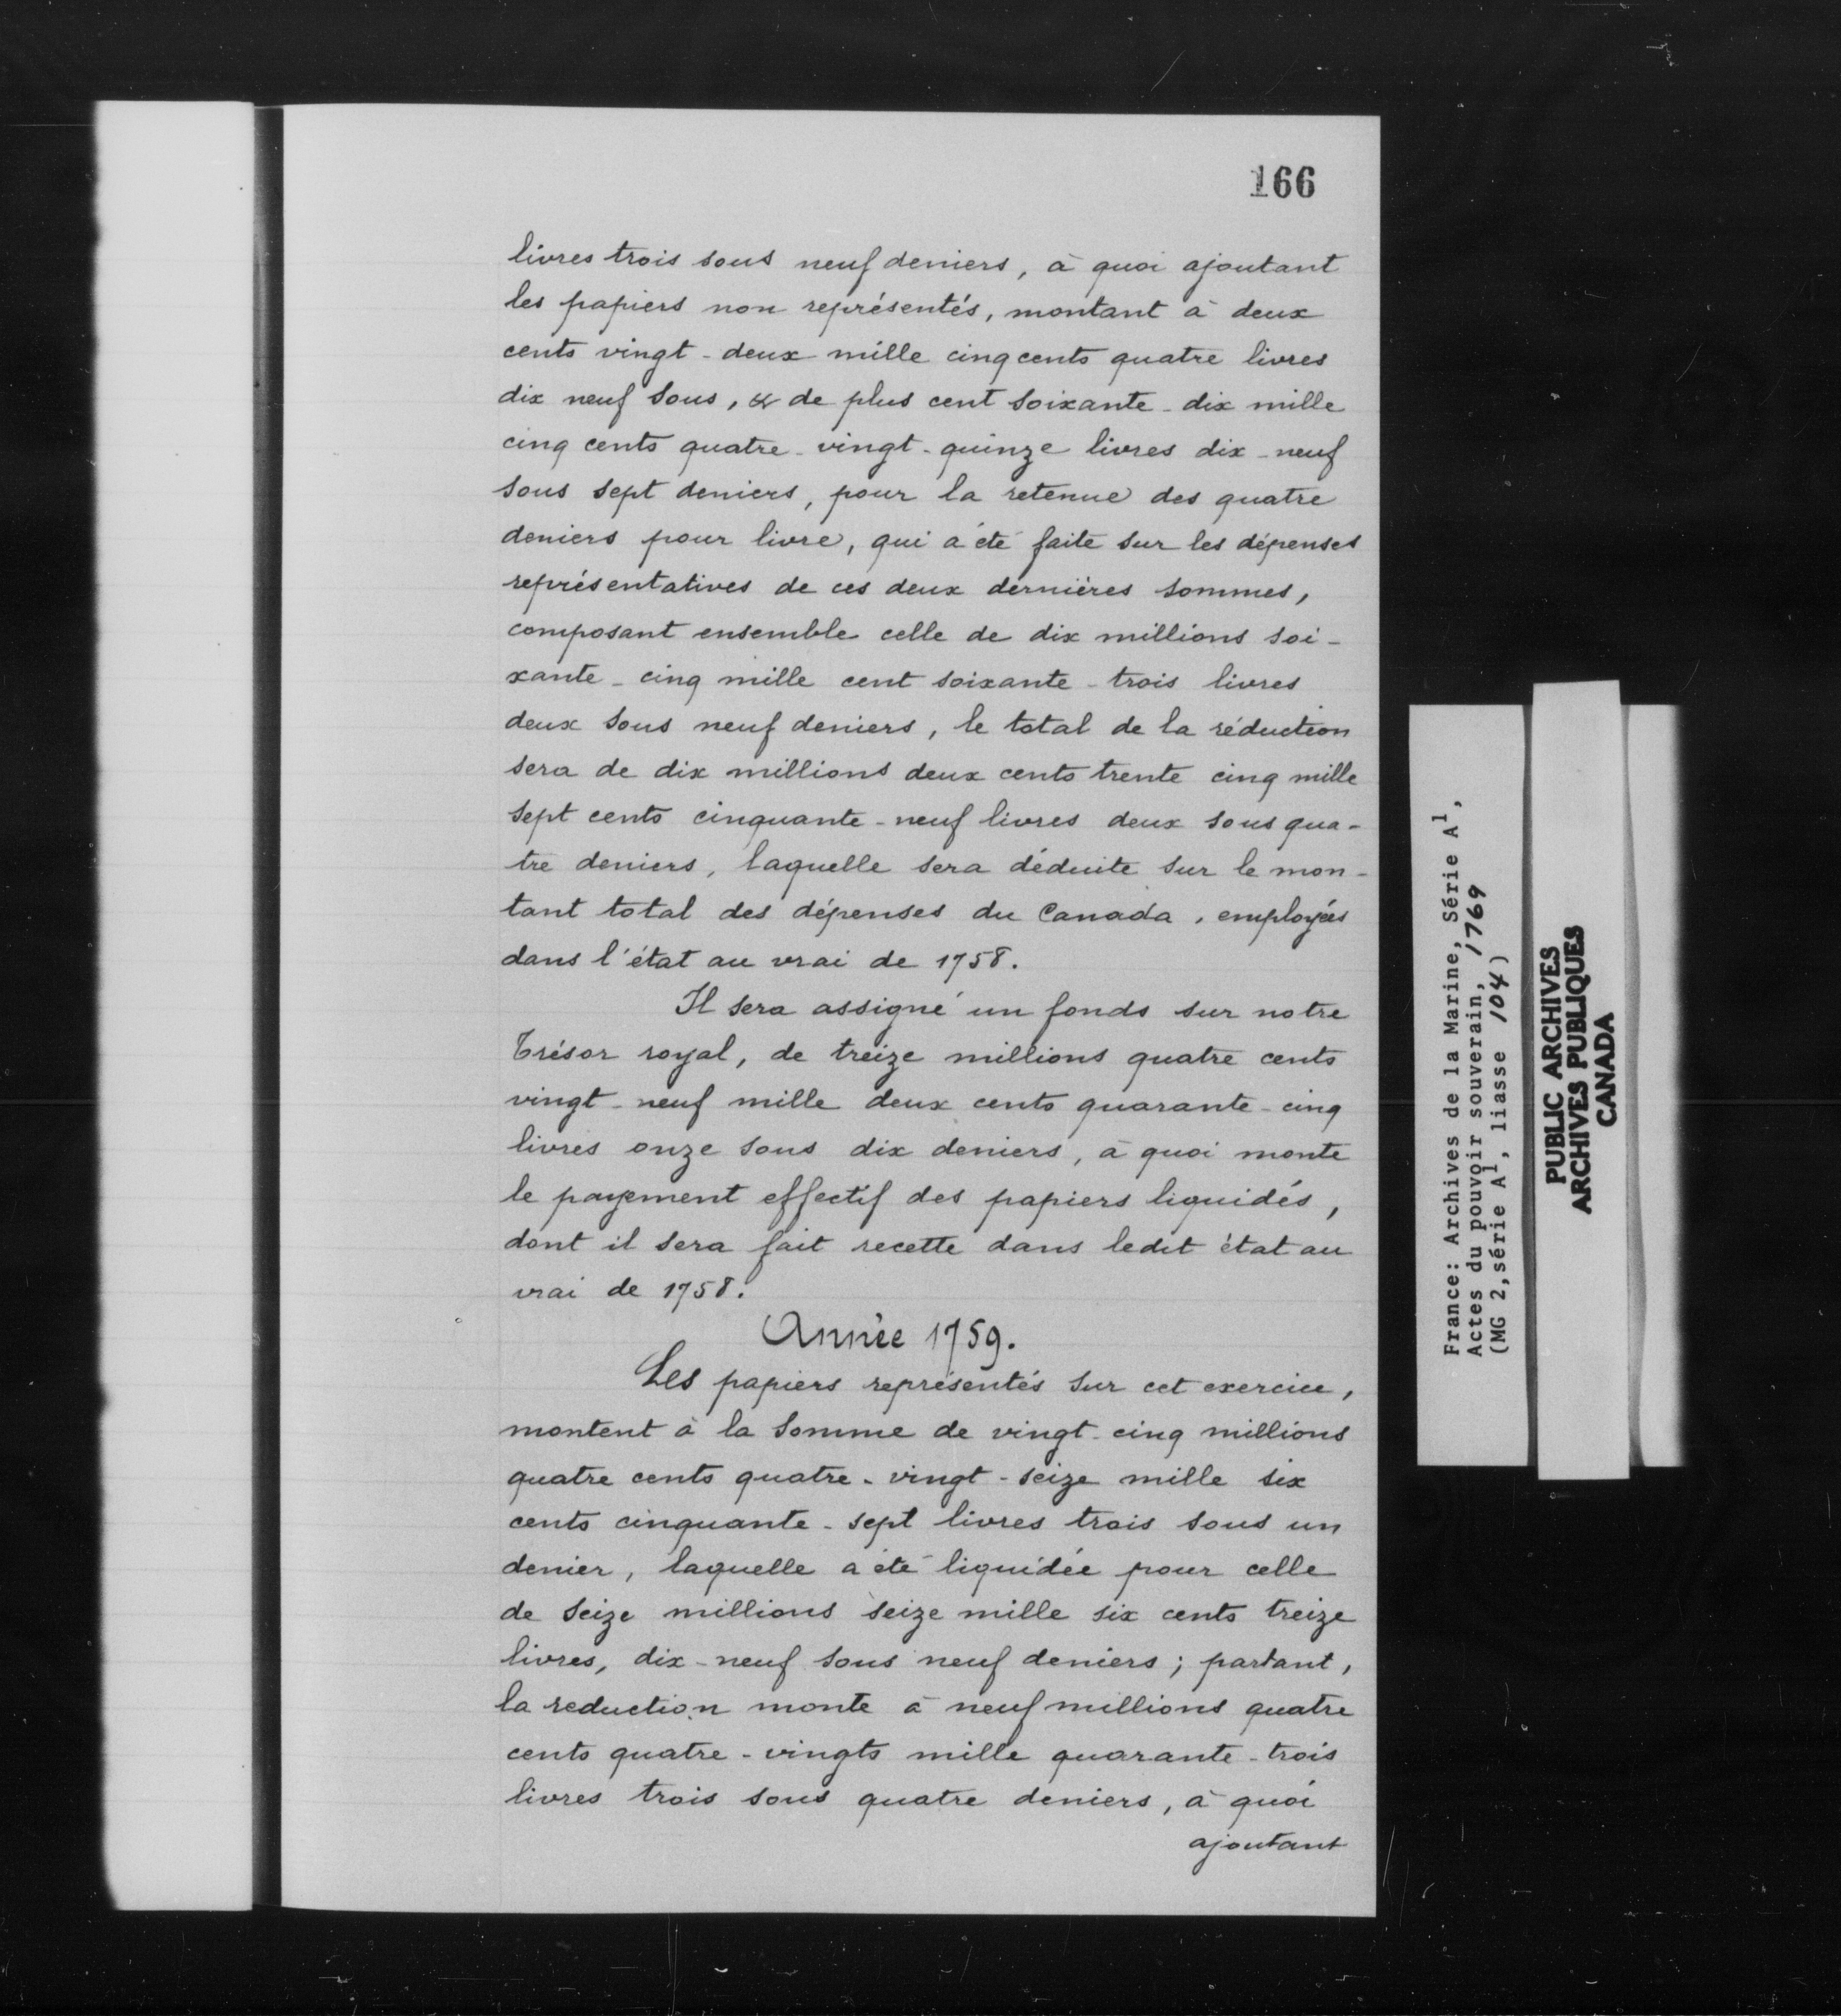 166
livres trois sous neuf deniers, à quoi ajoutant
les papiers non représentés, montant à deux
cents vingt-deux mille cinq cents quatre livres
dix neuf sous, & de plus cent soixante-dix mille
cinq cents quatre-vingt-quinze livres dix-neuf
sous sept deniers, pour la retenue des quatre
deniers pour livre, qui a été faite sur les dépenses
représentatives de ces deux dernières sommes,
composant ensemble celle de dix millions soi-
xante-cinq mille cent soixante-trois livres
deux sous neuf deniers, le total de la réduction
sera de dix millions deux cents trente cinq mille
sept cents cinquante-neuf livres deux sous qua-
tre deniers, laquelle sera déduite sur le mon-
tant total des dépenses du Canada, employées
dans l'état au vrai de 1758.
Il sera assigné un fonds sur notre
Trésor royal, de treize millions quatre cents
vingt-neuf mille deux cents quarante-cinq
livres onze sous dix deniers, à quoi monte
le payement effectif des papiers liquidés,
dont il sera fait recette dans ledit état au
vrai de 1758.
Année 1759.
Les papiers représentés sur cet exercice,
montent à la somme de vingt-cinq millions
quatre cents quatre-vingt-seize mille six
cents cinquante-sept livres trois sous un
denier, laquelle a été liquidée pour celle
de seize millions seize mille six cents treize
livres, dix-neuf sous neuf deniers; partant,
la reduction monte à neuf millions quatre
cents quatre-vingts mille quarante-trois
livres trois sous quatre deniers, à quoi
ajoutant
France: Archives de la Marine, Série A1,
Actes du pouvoir souverain, 1769
(MG 2, série A1, liasse 104)
PUBLIC ARCHIVES
ARCHIVES PUBLIQUES
CANADA